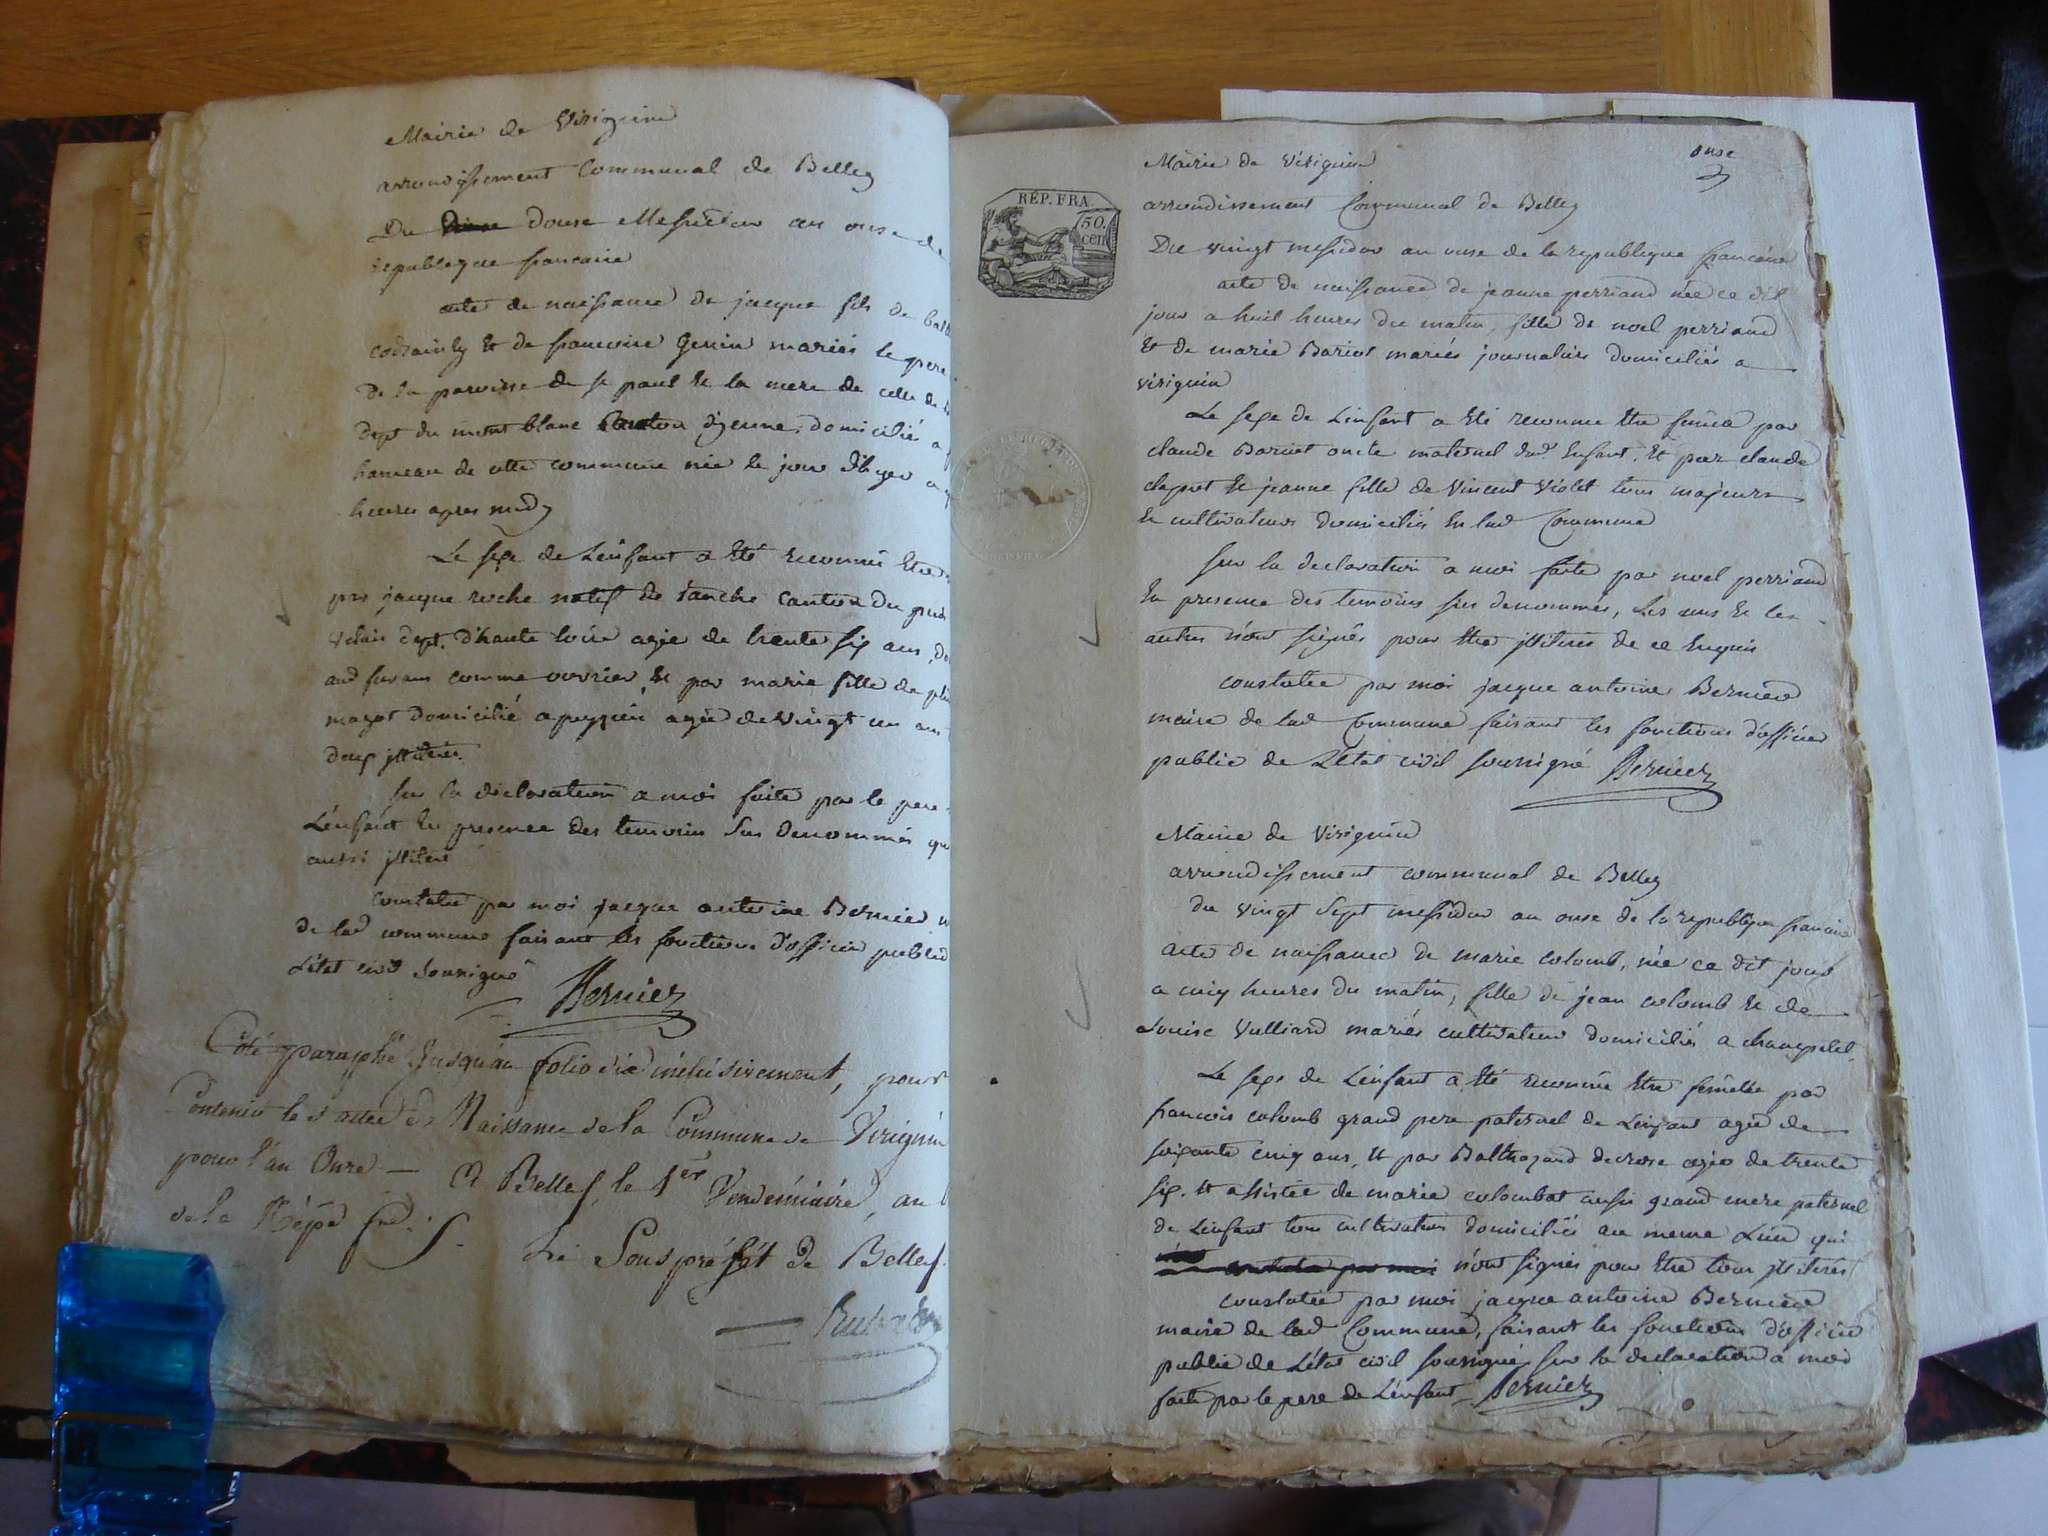 Mairie de Virignin
arrondissement Communal de Belley
Du douse Messidor an onse de
republique francaise
acte de naissance de jacque fils de balt
et de francoise Genin mariés le pere
de la paroisse de st paul et la mere de celle de
dept du mont blanc Canton d'yenne, domiciliés a
hameau de cette commune née le jour d'hyer a
heures apres midy
Le sexe de L'enfant a été reconnu etre
par jacque roche natif de canton du
velais dept. d'haute loire agée de trente six ans,
comme ouvrier, et par marie fille de
mazot domicilié a peyzieu agée de vingt un ans
deux illiteres.
sur la déclaration a moi faite par le pere
L'enfant en presence des temoins sus denommés qu
aussi illiteré
constatée par moi jacque antoine Bernier m
de lad commune faisant les fonctions d'officier public
L'état civil soussigné
Bernier
Côté paraphé jusqu'au folio dix inclusivement, pour
Contenir les actes de Naissance de la Commune de Virignin
pour l'an Onze — A Belley, le 1er Vendémiaire, an
de la Rép. fr.
Le Sous préfét de Belley.
onse
Mairie de Virignin
RÉP. FRA.
50.
cen
arrondissement Communal de Belley
Du vingt messidor an onse de la republique francaise
acte de naissance de jeanne perriand née ce dit
jour a huit heures du matin, fille de noel perriand
et de marie Bariot mariés journaliers domiciliés a
virignin
Le sexe de L'enfant a été reconnu etre femelle par
claude Bariot oncle maternel dud. Enfant, et par claude
et jeanne fille de Vincent Violet tous majeurs
et cultivateurs domiciliés en lad Commune
sur la declaration a moi faite par noel perriand
en presence des temoins sus denommés, les uns et les
autres n'ont signés pour etre illiteres de ce enquis
constatée par moi jacque antoine Bernier
maire de lad Commune faisant les fonctions d'officier
public de L'état civil soussigné Bernier
Mairie de Virignin
arrondissement communal de Belley
du vingt sept messidor an onse de la republique francaise
acte de naissance de marie colomb, née ce dit jour
a cinq heures du matin, fille de jean colomb et de
Louise Vulliard mariés cultivateurs domiciliés a champtel
Le sexe de L'enfant a été reconnu etre femelle par
francois colomb grand pere paternel de L'enfant agée de
soixante cinq ans, et par Balthazard decrose agée de trente
six. et assistée de marie colombat aussi grand mere paternel
de L'enfant tous cultivateurs domiciliés au meme Lieu qui
n'ont signés pour etre tous illiterés
constatée par moi jacque antoine Bernier
maire de lad Commune, faisant les fonctions d'officier
public de L'état civil soussigné sur la declaration a moi
faite par le pere de L'enfant Bernier